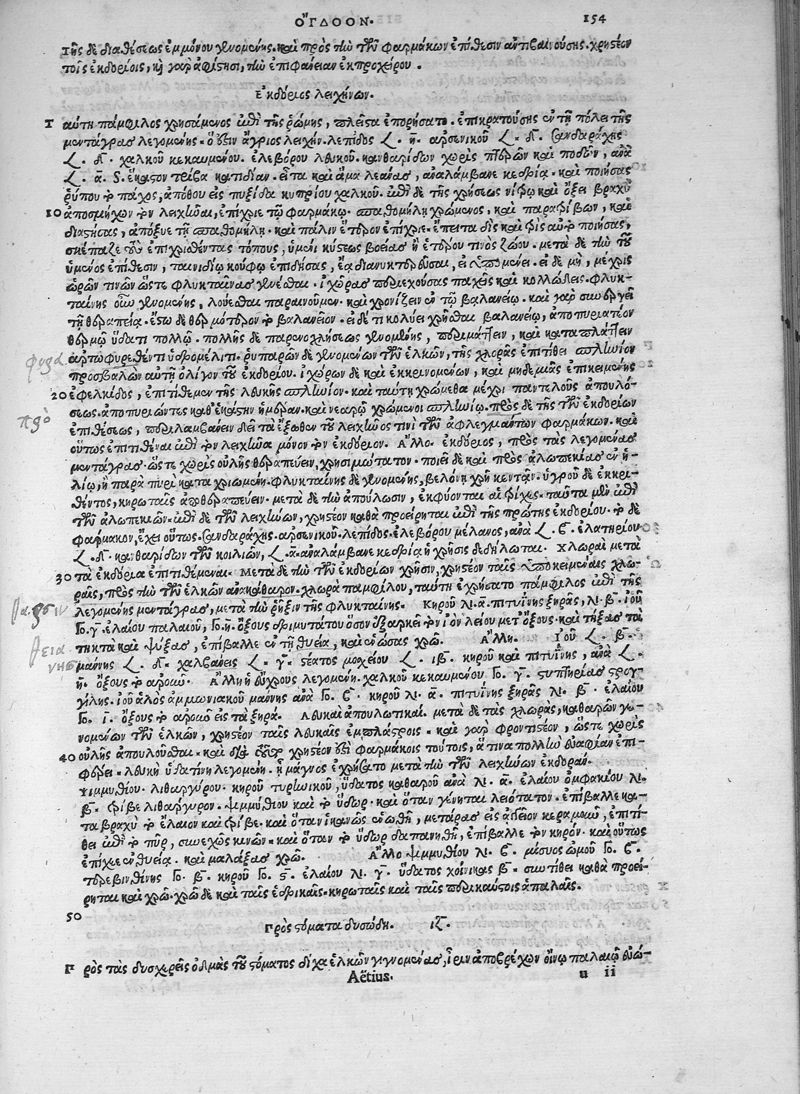 ΟΓΔΟΟΝ. 154
τῆς δὲ διαθέσεως ἐμμόνου γινομένης. καὶ πρὸς τὴν τῶν φαρμάκων ἐπίθεσιν ἀντιβαινούσης. χρηστέον
τοῖς ἐκδορίοις, ἢ γὰρ ἀφίστησι, τὴν ἐπιφάνειαν ἐκπροχείρου.
ἐκδόριος λειχήνων.
Τ αύτη πάμφιλος χρησάμενος ἐπὶ τῆς ῥώμης, πλεῖστα ἐπορήσατο. ἐπικρατούσης ἐν τῇ πόλει τῆς
μεντάγρας λεγομένης. ὅ ἐστιν ἄγριος λειχήν. λεπίδος
χαλκοῦ κεκαυμένου. ἐλεβόρου λευκοῦ. κανθαρίδων χωρὶς πτερῶν καὶ ποδῶν, ἀνὰ
ἕκαστον τρίβε κατιδίαν. εἶτα καὶ ἅμα λεάνας, ἀναλάμβανε κεδρίᾳ. καὶ ποιήσας
ῥύπου τὸ πάχος, ἀπόθου εἰς πυξίδα κυπρίου χαλκοῦ. ἐπὶ δὲ τῆς χρήσεως νίτρῳ καὶ ὄξει βραχὺ
10 ἀποσμήχων τὸν λειχῆνα, ἐπίχριε τῷ φαρμάκῳ. σπαθομήλῃ χρώμενος, καὶ παρατρίβων, καὶ
διαστήσας, ἀπόξυε τῇ σπαθομήλῃ. καὶ πάλιν ἕτερον ἐπίχριε. ἔπειτα δὶς καὶ τρὶς αὐτὸ ποιήσας,
σκέπαζε τοὺς ἐπιχρισθέντας τόπους, ὑμένι κύστεως βοείας ἢ ἑτέρου τινὸς ζώου. μετὰ δὲ τὴν τοῦ
ὑμένος ἐπίθεσιν, ταινιδίῳ κούφῳ ἐπιδήσας, ἔα διανυκτερεῦσαι, εἰ ὑπομένει. εἰ δὲ μὴ, μέχρις
ὡρῶν τινῶν ὥστε φλυκταίνας γενέσθαι. ἰχῶρας περιεχούσας παχεῖς καὶ κολλώδεις. φλυκ-
ταίνης οὖν γενομένης, λούεσθαι παραινοῦμεν. καὶ χρονίζειν ἐν τῷ βαλανείῳ. καὶ γὰρ συνεργεῖ
τῇ θεραπείᾳ. ἔστω δὲ θερμότερον τὸ βαλανεῖον. εἰ δέ τι κολύει χρῆσθαι βαλανείῳ, ἀποπυριατέον
θερμῷ ὕδατι πολλῷ. πολλῆς δὲ παρενοχλήσεως γενομένης, καὶ καταπλάττειν
ἄρτῳ φυρεθέντι ὑδρομέλιτι. ῥυπαρῶν δὲ γενομένων τῶν ἑλκῶν, τῆς χλορᾶς ἐπιτίθει σπληνίον
προσβαλὼν αὐτῇ ὀλίγον τοῦ ἐκδορίου. ἰχώρων δὲ καὶ ἐκκρινομένων, καὶ μηδεμιᾶς ἐπικειμένης
20 ἐφελκίδος, ἐπιτίθεμεν τῆς λευκῆς σπληνίον. καὶ ταύτῃ χρώμεθα μέχρι παντελοῦς ἀπουλώ-
σεως. ἀποπυριῶντες καθ' ἑκάστην ἡμέραν. καὶ νεαρῷ χρώμενοι σπληνίῳ. πρὸς δὲ τῆς τῶν ἐκδορίων
ἐπιθέσεως, περιλαμβάνειν δεῖ τὰ ἔξωθεν τοῦ λειχῆνος τινὶ τῶν ἀφλεγμάντων φαρμάκων. καὶ
οὕτως ἐπιτιθέναι ἐπὶ τὸν λειχῆνα μόνον τὸν ἐκδόριον. Ἄλλο. ἐκδόριος, πρὸς τὰς λεγομένας
μεντάγρας. ὥστε χωρὶς οὐλῆς θεραπεύειν, χρησιμώτατον. ποιεῖ δὲ καὶ πρὸς ἀλωπεκίας ἐν ἡ-
λίῳ, ἢ παρὰ πυρὶ καταχριομένη. φλυκταίνης δὲ γενομένης, βελόνῃ χρὴ κεντᾶν. ὑγροῦ δὲ ἐκκρι-
θέντος, κηρωταῖς ἀποθεραπεύειν. μετὰ δὲ τὴν ἀπούλωσιν, ἐκφύονται αἱ τρίχες. ταῦτα μὲν ἐπὶ
τῶν ἀλωπεκιῶν. ἐπὶ δὲ τῶν λειχήνων, χρηστέον καθὰ προείρηται ἐπὶ τῆς πρώτης ἐκδορίου. τὸ δὲ
φάρμακον, ἔχει οὕτως. σανδαράχης. ἀρσενικοῦ. λεπίδος. ἐλεβόρου μέλανος, ἀνὰ ἐλατηρίου
κανθαρίδων τῶν κοιλιῶν, ἀναλάμβανε κεδρίᾳ. ἡ χρῆσις δεδήλωται. Χλωραὶ μετὰ
30 τὰ ἐκδόρια ἐπιτιθέμεναι. Μετὰ δὲ τὴν τῶν ἐκδορίων χρῆσιν, χρηστέον ταῖς ὑποκειμέναις χλω-
ραῖς, πρὸς τὴν τῶν ἑλκῶν ἀνακάθαρσιν. χλωρὰ παμφίλου, ταύτῃ ἐχρήσατο πάμφιλος ἐπὶ τῆς
λεγομένης μεντάγρας, μετὰ τὴν ῥῆξιν τῆς φλυκταίνης. Κηροῦ λι. α. πιτυΐνης ξηρᾶς, λι. β. ἰοῦ
Γο. γ. ἐλαίου παλαιοῦ, Γο. η. ὄξους δριμυτάτου ὅσον ἐξαρκεῖ τὸν ἰὸν λείου μετ' ὄξους. καὶ τήξας τὰ
τηκτὰ καὶ ψύξας, ἐπίβαλλε ἐν τῇ θυείᾳ, καὶ ἑνώσας χρῶ. Ἄλλη. Ἰοῦ
μάννης χαλβάνης στέατος μοχείου κηροῦ καὶ πιτυΐνης, ἀνὰ
ὄξους τὸ ἀρκοῦν. Ἄλλη ἡ διχρους λεγομένη. χαλκοῦ κεκαυμένου Γο. γ. στυπτηρίας στρογ-
γύλης. ἰοῦ ἁλὸς ἀμμωνιακοῦ μάννης ἀνὰ Γο. ϛ. κηροῦ λι. α. πιτυΐνης ξηρᾶς λι. β. ἐλαίου
Γο. ὄξους τὸ ἀρκοῦν εἰς τὰ ξηρά. Λευκαὶ ἀπουλωτικαί. μετὰ δὲ τὰς χλωρὰς, καθαρῶν γε-
νομένων τῶν ἑλκῶν, χρηστέον ταῖς λευκαῖς ἐμπλάστροις. καὶ γὰρ φροντιστέον, ὥστε χωρὶς
40 οὐλῆς ἀπουλοῦσθαι. καὶ διὰ τοῦτο χρηστέον ἐστὶ φαρμάκοις τούτοις, ἅτινα πολλὴν εὐαφίαν ἐπι-
φέρει. λευκὴ ὑδατίνη λεγομένη. ᾗ μάγνος ἐχρήσατο μετὰ τὴν τῶν λειχήνων ἐκδοράν.
ψιμμυθίου. λιθαργύρου. κηροῦ τυρίωικοῦ, ὕδατος καθαροῦ ἀνὰ λι. α. ἐλαίου ὀμφακίου λι.
β. τρίβε λιθάργυρον. ψιμμύθιον καὶ τὸ ὕδωρ. καὶ ὅταν γένηται λειότατον. ἐπίβαλλε κα-
ταβραχὺ τὸ ἔλαιον καὶ τρίβε. καὶ ὅταν ἱκανῶς ἑνωθῇ, μετάρας εἰς ἀγγεῖον κεραμοῦν, ἐπιτί-
θει ἐπὶ τὸ πῦρ, συνεχῶς κινῶν. καὶ ὅταν τὸ ὕδωρ δαπανηθῇ, ἐπίβαλλε τὸν κηρόν. καὶ οὕτως
ἐπίχει ἐν θυείᾳ. καὶ μαλάξας χρῶ. Ἄλλο ψιμμυθίου λι. ϛ. μίσυος ὠμοῦ Γο. ϛ.
τερεβινθίνης Γο. β. κηροῦ Γο. ϛ. ἐλαίου λι. γ. ὕδατος χοίνικας β. συντίθει καθὰ προεί-
ρηται καὶ χρῶ. χρῶ δὲ καὶ ταῖς ἑδρικαῖς. κηρωταῖς καὶ ταῖς περικαύστοις ἁπαλαῖς.
50
Πρὸς στόματα δυσώδη. ιζ.
Π ρὸς τὰς δυσχερεῖς ὀδμὰς τοῦ στόματος δίχα ἑλκῶν γιγνομένας, ἴριν ἀποβρέχων οἴνῳ παλαιῷ εὐώ-
Aëtius. u ii